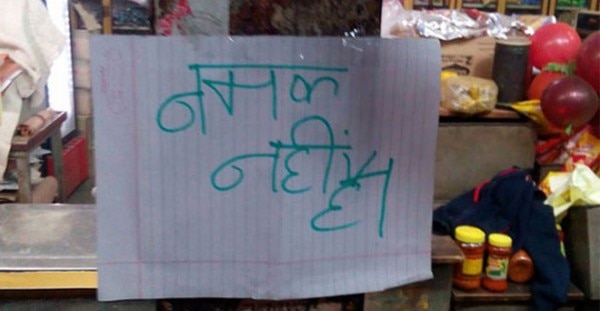 नमक
नहीं है